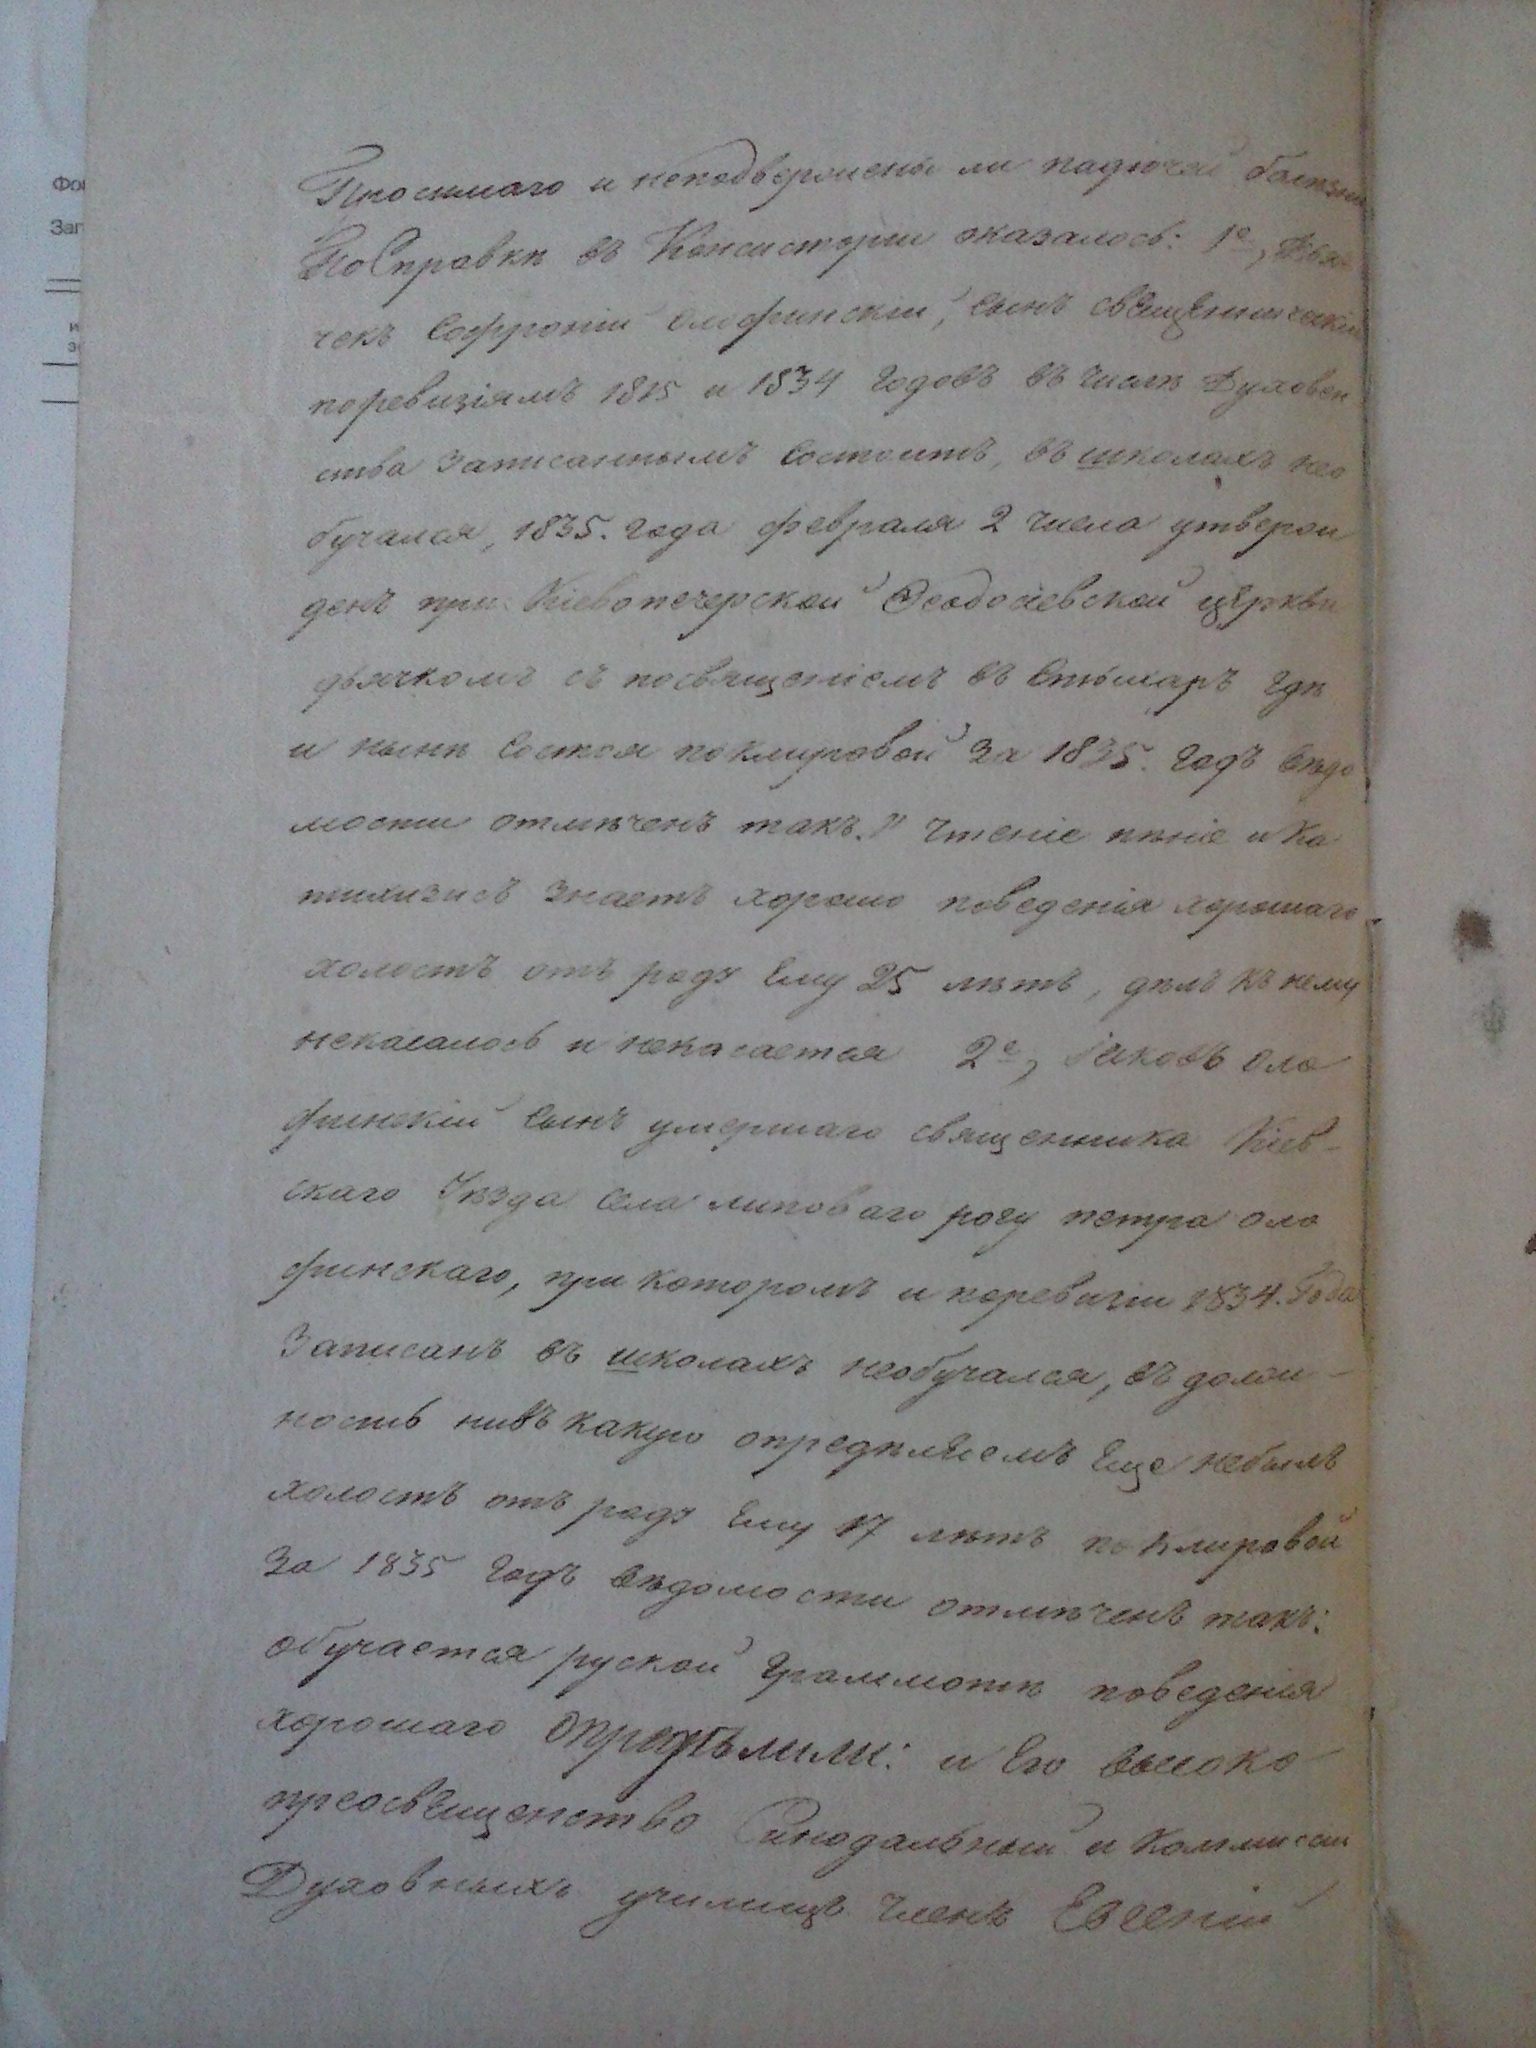 Просимаго и неподвержены ли падючей болезни
По Справкѣ въ Консисторіи оказалось: 1е, Дья
чекъ Софроній Олофинскій, сынъ священническій
поревизіямъ 1815 и 1834 годовъ въ числѣ Духовен
ства записаннымъ состоитъ, въ школахъ нео
бучался, 1835. года февраля 2 числа утверж
денъ при Кіевопечерской Ѳеодосіевской церкви
дьячкомъ съ посвященіемъ въ стыхарь гдѣ
и нынѣ состоя поклировой за 1835. годъ вѣдо
мости отмѣченъ такъ." Чтеніе пѣніе и Ка
тихизисъ знаетъ хорошо поведенія хорошаго
холостъ отъ роду ему 25 лѣтъ, дѣлъ къ нему
некасалось и некасается 2е, Іаковъ Оло
финскій сынъ умершаго священника Кіев-
скаго Уѣзда села липоваго рогу петра Оло
финскаго, при которомъ и поревизіи 1834. Года
Записанъ въ школахъ необучался, въ долж-
ность нивъ какую опредѣляемъ еще небылъ
холостъ отъ роду ему 17 лѣтъ поклировой
за 1835 годъ вѣдомости отмѣченъ такъ:
обучается руской граммотѣ поведенія
хорошаго опредѣлили: и Его высоко
преосвященство Синодальный и Коммисіи
Духовныхъ училищъ Членъ Евгеній
Фо
Заг